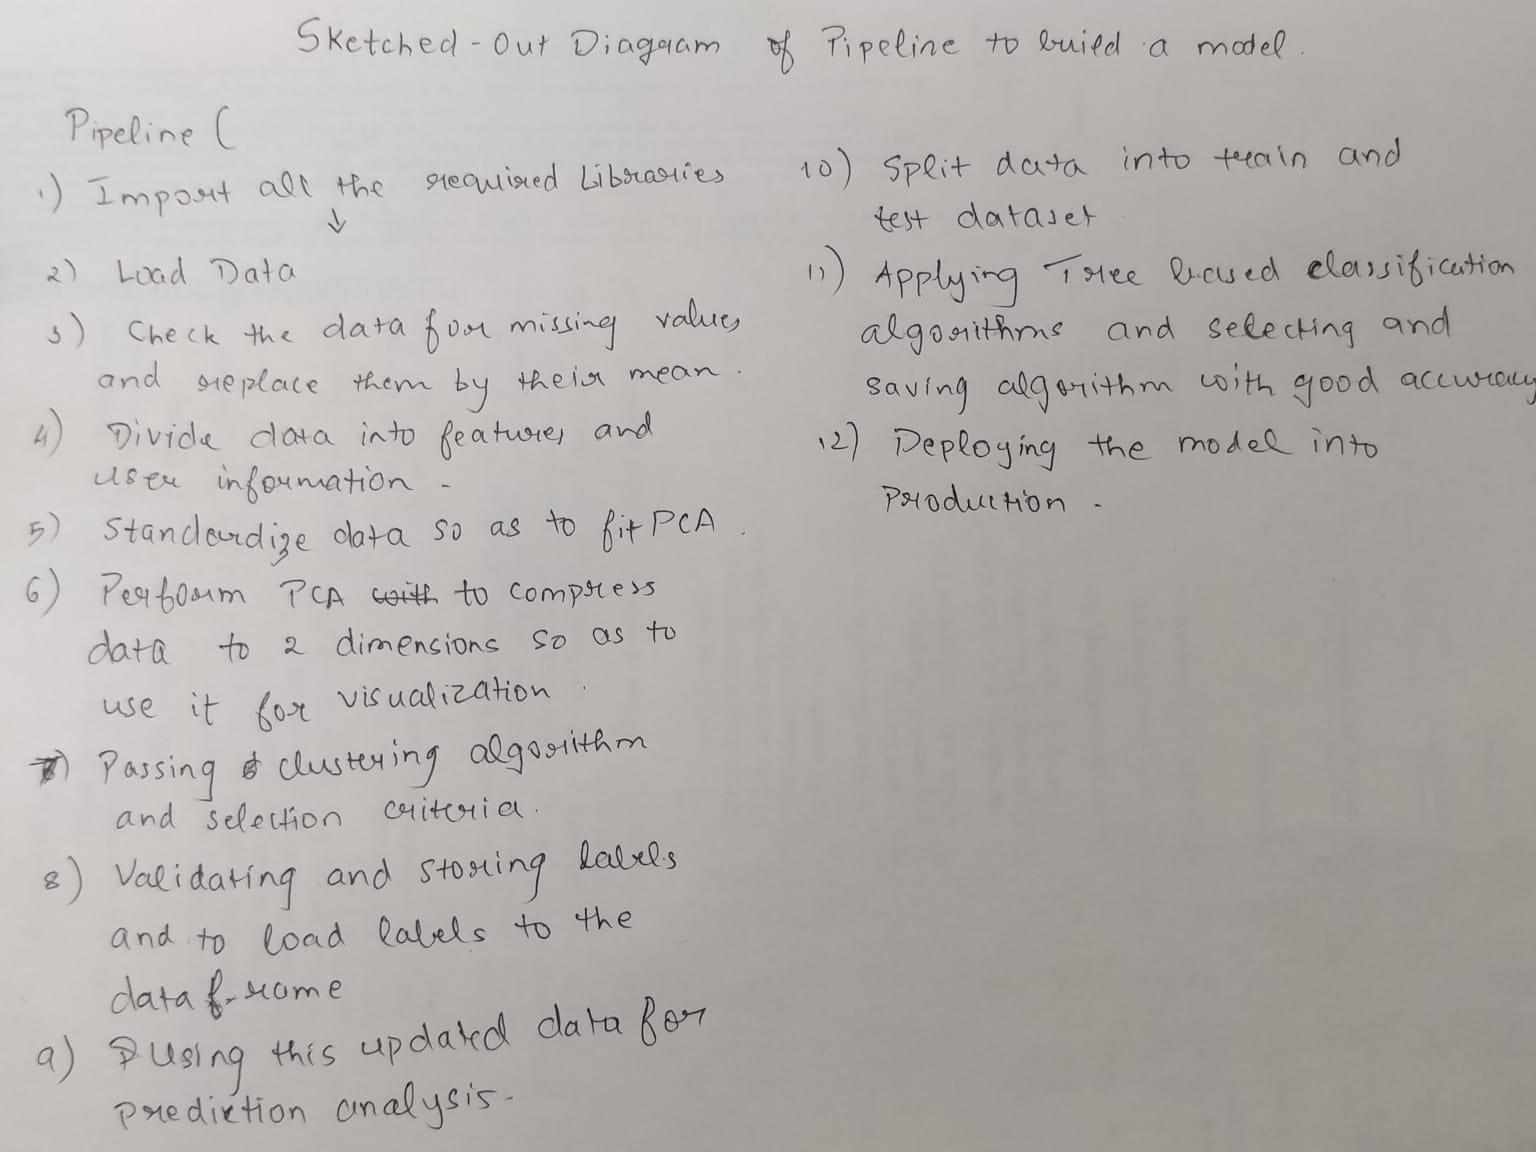 Sketched-Out Diagram of Pipeline to build a model.
Pipeline (
1) Import all the required Libraries
↓
2) Load Data
3) Check the data for missing values
and replace them by their mean.
4) Divide data into features and
user information -
5) Standardize data so as to fit PCA.
6) Perform PCA with to compress
data to 2 dimensions so as to
use it for visualization.
7) Passing clustering algorithm
and selection criteria.
8) Validating and storing labels
and to load labels to the
data frame
9) Using this updated data for
prediction analysis-
10) Split data into train and
test dataset
11) Applying Tree based classification
algorithms and selecting and
saving algorithm with good accuracy
12) Deploying the model into
Production -